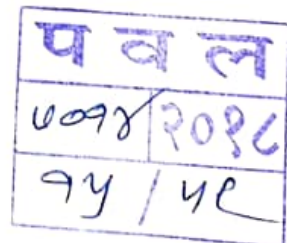 पवल
७०१४ २०१८
१५ / ५९